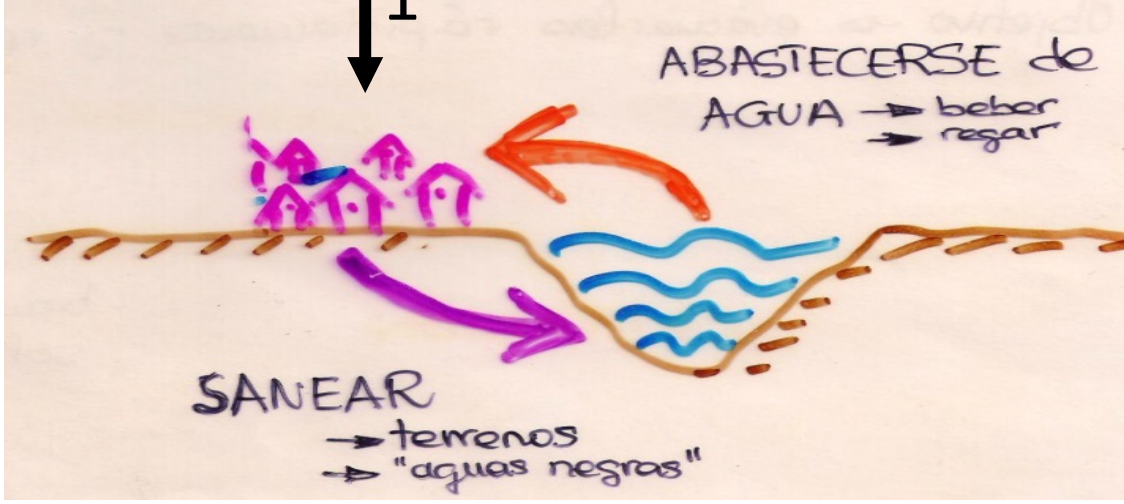 ABASTECERSE de
AGUA → beber
→ regar
SANEAR
→ terrenos
→ "aguas negras"